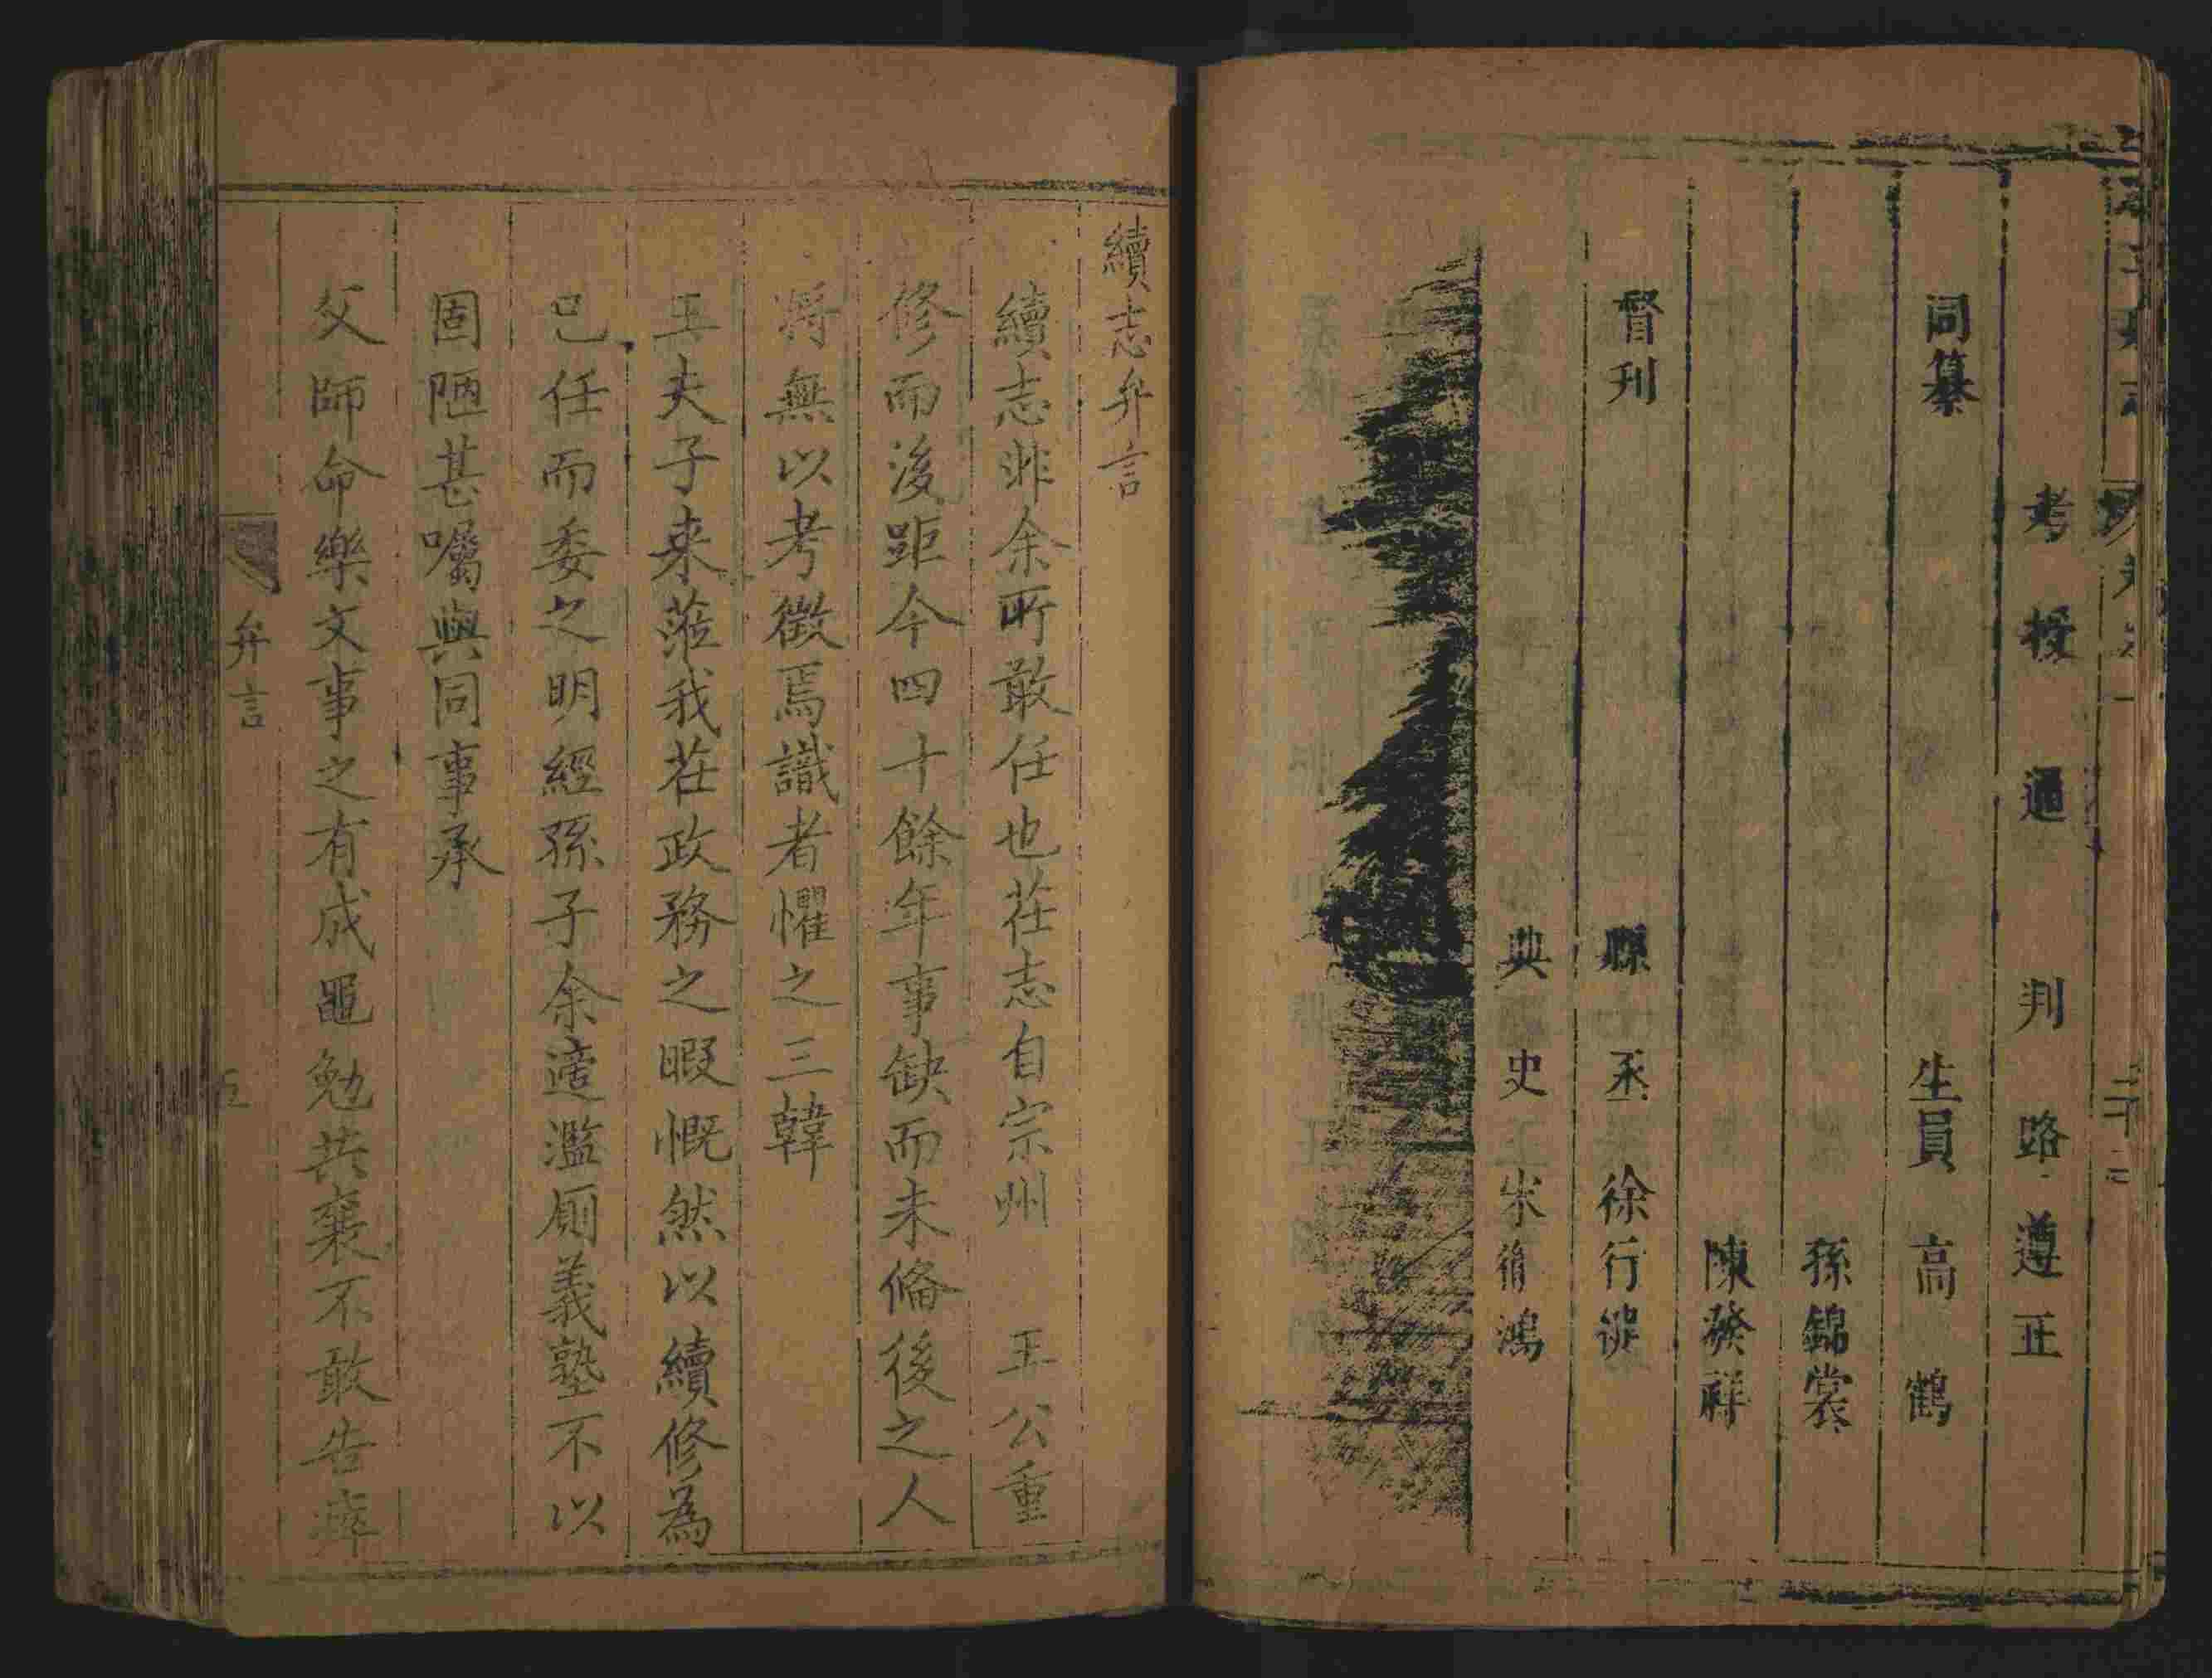 考授通判路遵正
同纂 生員高鶴
孫錦裳
陳發祥
督刊 縣丞徐行
典史宋 鴻
續志弁言
續志非余所敢任也茌志自宗州 王公重
修而後距今四十餘年事缺而未備後之人
將無以考徵焉識者懼之三韓
王夫子来蒞我茌政務之暇慨然以續修為
己任而委之明經孫子余適濫厠義塾不以
固陋甚囑與同事承
父師命樂文事之有成黽勉共襄不敢告瘁
弁言
五